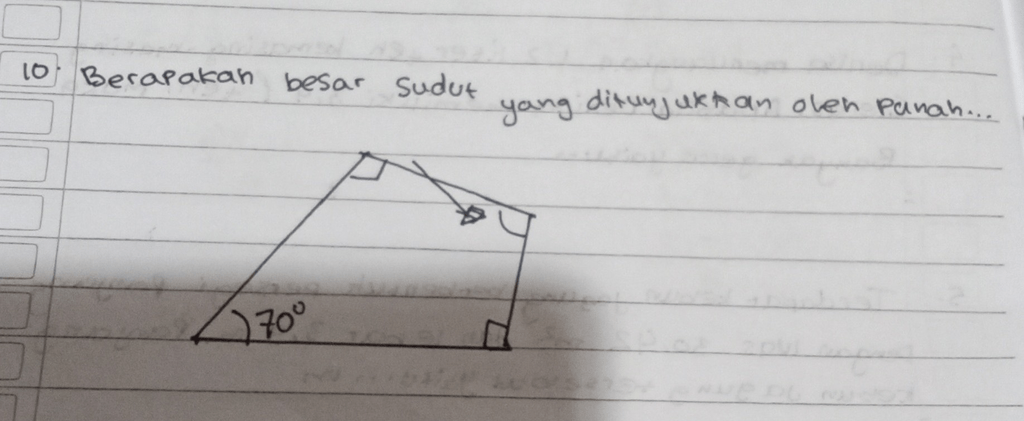 10. Berapakah besar sudut yang ditunjukkan oleh panah...
70°